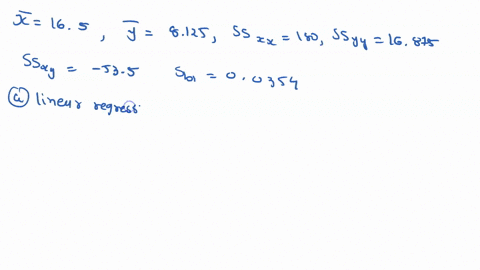 x̄ = 16.5, ȳ = 8.125, SSxx = 180, SSyy = 16.875
SSxy = -53.5 Sb1 = 0.0354
ⓐ linear regress